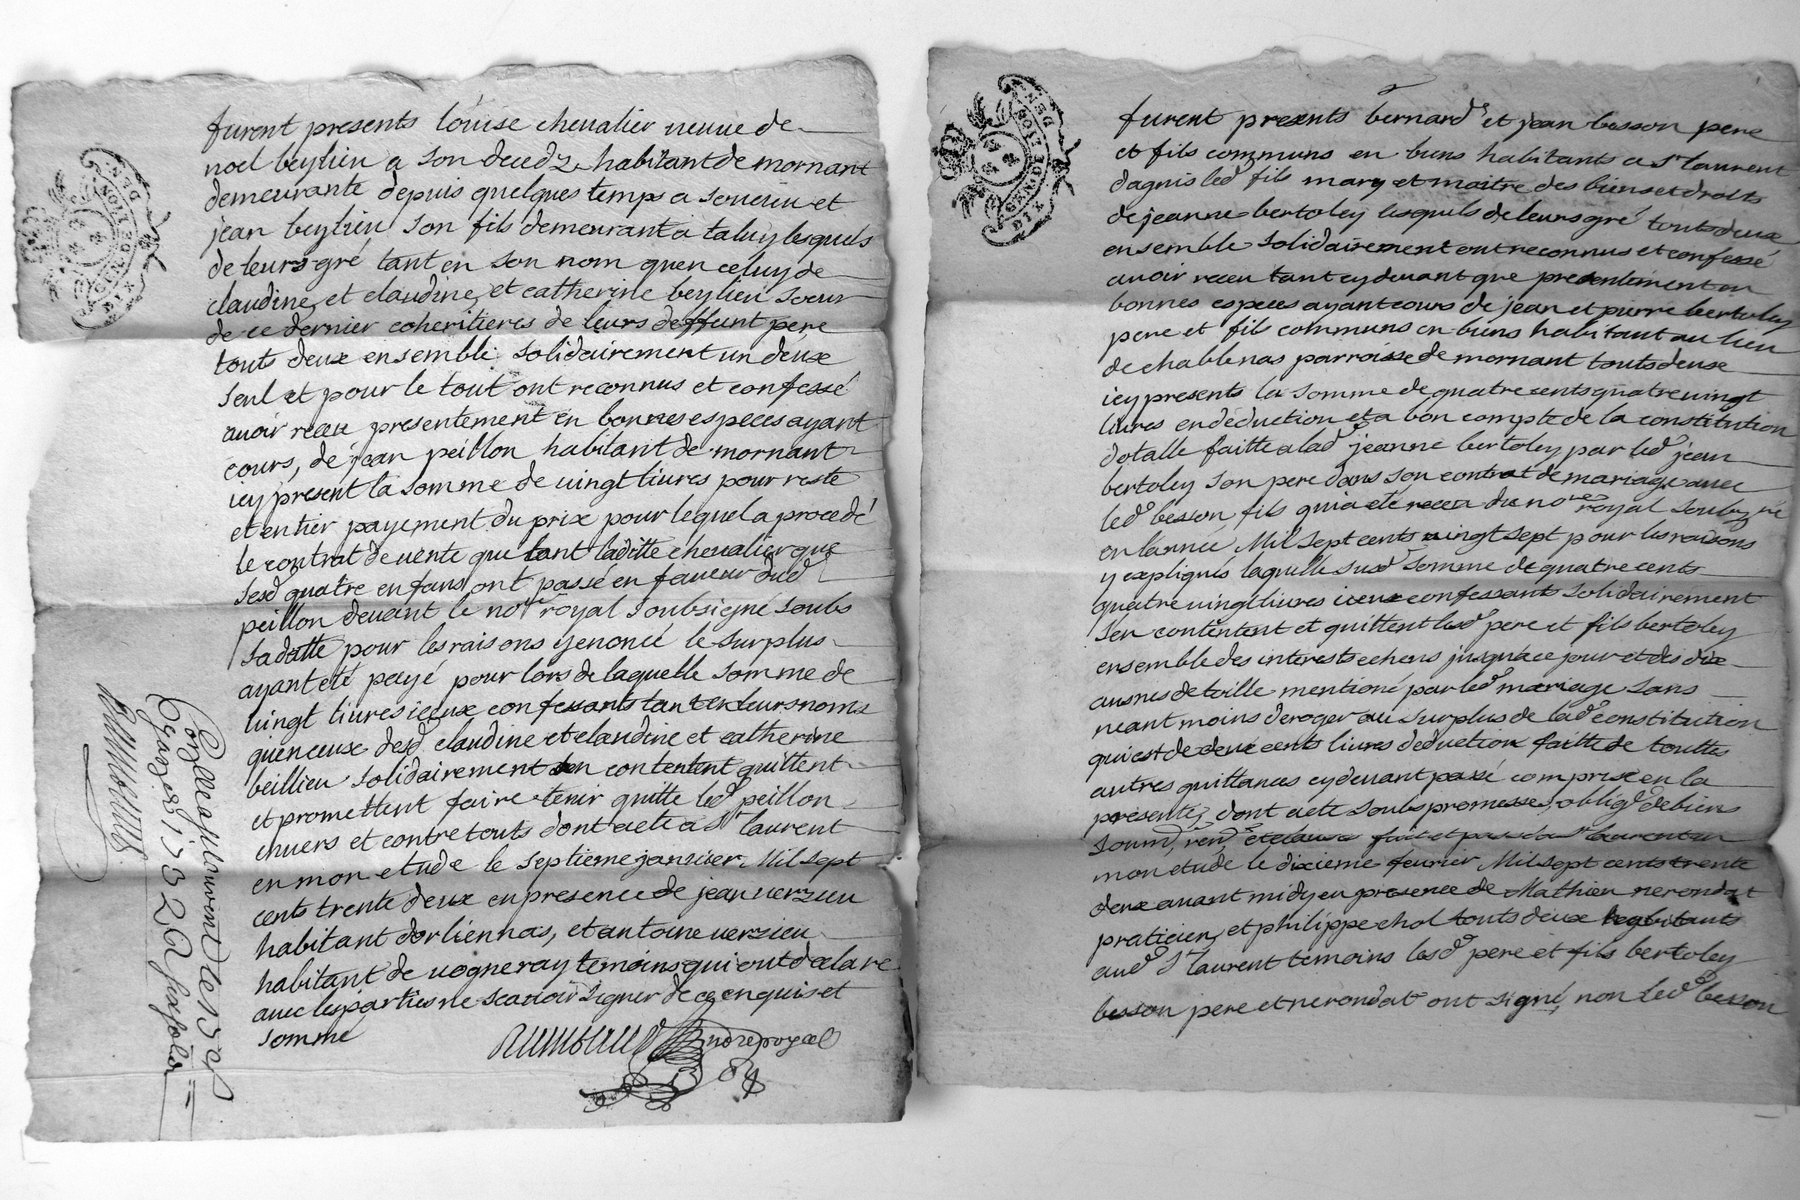 furent presents loüise chevalier veuve de
noel beylieu a son decedz habitant de mornant
demeurante depuis quelques temps a soucieu et
jean beylieu son fils demeurant a taluy lesquels
de leurs gré tant en son nom quen celuy de
claudine et claudine et catherine beylieu soeur
de ce dernier coheritieres de leurs deffunt pere
touts deux ensemble solidairement un deux
seul et pour le tout ont reconnus et confessé
avoir receu presentement en bonnes especes ayant
cours, de jean peillon habitant de mornant
icy present la somme de vingt livres pour reste
et entier payement du prix pour lequel a procedé
le contrat de vente que tant laditte chevalier que
sesd quatre enfans ont passé en faveur dud
peillon devant le nore royal soubsigné soubs
sa datte pour les raisons y enoncé le surplus
ayant eté payé pour lors de laquelle somme de
vingt livres iceux confessants tant en leurs noms
quen ceux desd claudine et claudine et catherine
beillieu solidairement sen contentent quittent
et promettent faire tenir quitte led peillon
envers et contre touts dont acte a St laurent
en mon etude le septieme janvier Mil sept
cents trente deux en presence de jean verzieu
habitant dorliennas, et antoine verzieu
habitant de vogneray temoins qui ont declaré
avec les parties ne scavoir signer de ce enquis et
sommé
notre royal
GEN DE LION
DIX DEN
furent presents bernard et jean besson pere
et fils communs en biens habitants a St laurent
dagnis led fils mary et maitre des biens et droits
de jeanne bertoley lesquels de leurs gré touts deux
ensemble solidairement ont reconnus et confessé
avoir receu tant cy devant que presentement en
bonnes especes ayant cours de jean et pierre bertoley
pere et fils communs en biens habitant au lieu
de chablenas parroisse de mornant touts deux
icy presents la somme de quatre cents quatre vingt
livres en deduction et a bon compte de la constitution
dotalle faitte a lad jeanne bertoley par led jean
bertoley son pere dans son contrat de mariage avec
led besson fils qui a eté receu du nore royal soubzné
en lannée Mil sept cents vingt sept pour les raisons
y expliqués laquelle susd somme de quatre cents
quatre vingt livres iceux confessants solidairement
sen contentent et quittent lesd pere et fils bertoley
ensemble des interests echeus jusqua ce jour et des dix
ausnes de toille mentioné par led mariage sans
neant moins deroger au surplus de lad constitution
qui est de deux cents livres deduction faitte de touttes
autres quittances cy devant passé comprise en la
presente, dont acte soubs promesses, oblig de biens
soum, ren, et clauses fait et passé a St laurent en
mon etude le dixieme fevrier Mil sept cents trente
deux avant midy en presence de Mathieu nerondat
praticien, et philippe chol touts deux habitants
aud St laurent temoins lesd pere et fils bertoley
besson pere et nerondat ont signé, non led besson
GEN DE LION
DIX DEN